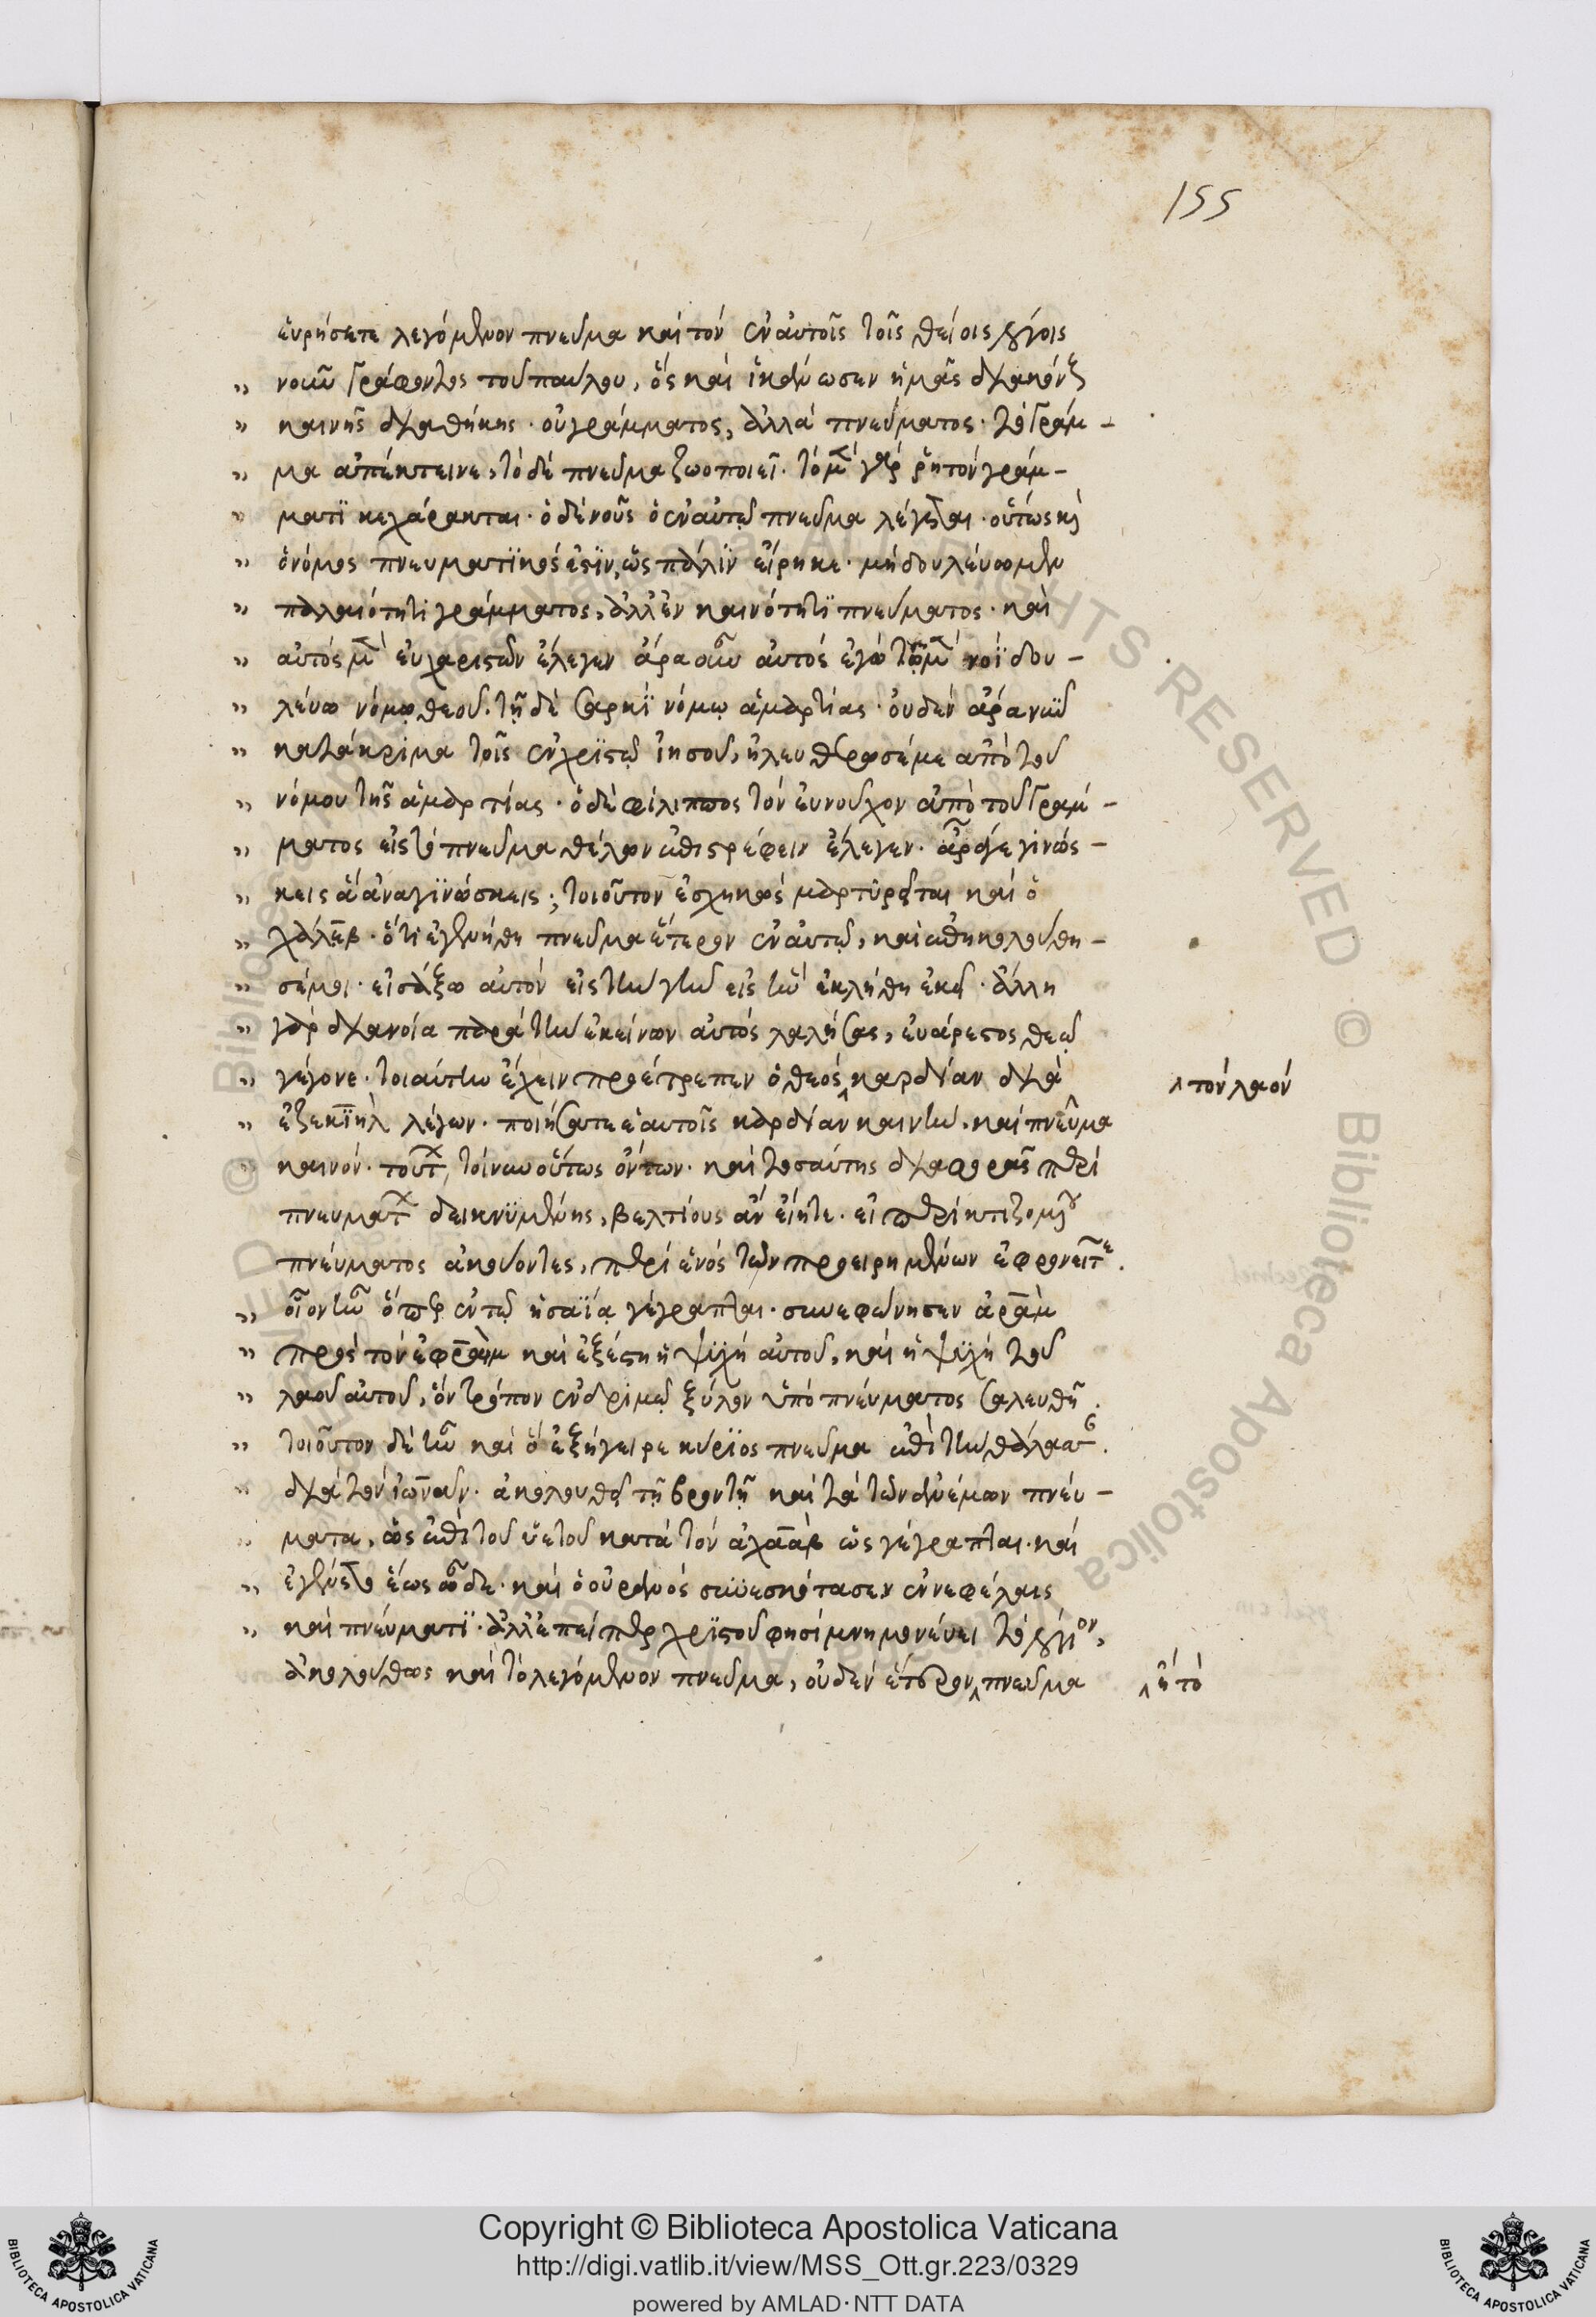 155
εὑρήσετε λεγόμενον πνεῦμα καὶ τὸν ἐν αὐτοῖς τοῖς θείοις λόγοις
νοῦν γράφοντος τοῦ παύλου, ὃς καὶ ἱκάνωσεν ἡμᾶς διακόνους
καινῆς διαθήκης · οὐ γράμματος, ἀλλὰ πνεύματος · τὸ γράμ -
μα ἀπέκτεινε, τὸ δὲ πνεῦμα ζωοποιεῖ · τὸ μὲν γὰρ ῥητὸν γράμ -
ματϊ κεχάρακται · ὁ δὲ νοῦς ὁ ἐν αὐτῷ πνεῦμα λέγεται · οὕτως καὶ
ὁ νόμος πνευματϊκός ἐστϊν, ὡς πάλϊν εἴρηκε · μὴ δουλεύωμεν
παλαιότητι γράμματος, ἀλλ' ἐν καινότητϊ πνεύματος · καὶ
αὐτὸς μὲν εὐχαριστῶν ἔλεγεν ἄρα οὖν αὐτὸς ἐγὼ τῷ μὲν νοῒ δου -
λεύω νόμῳ θεοῦ · τῇ δὲ σαρκῒ νόμῳ ἁμαρτίας · οὐδὲν ἄρα νῦν
κατάκριμα τοῖς ἐν χρϊστῷ ἰησοῦ, ἠλευθέρωσέ με ἀπὸ τοῦ
νόμου τῆς ἁμαρτίας · ὁ δὲ φίλιππος τὸν εὐνοῦχον ἀπὸ τοῦ γράμ -
ματος εἰς τὸ πνεῦμα θέλων ἐπιστρέφειν ἔλεγεν · ἆρά γε γινώς -
κεις ἃ ἀναγϊνώσκεις ; τοιοῦτον ἐσχηκὼς μαρτυρεῖται καὶ ὁ
χάλεβ · ὅτι ἐγενήθη πνεῦμα ἕτερον ἐν αὐτῷ, καὶ ἐπηκολούθη -
σέ μοι · εἰσάξω αὐτὸν εἰς τὴν γῆν εἰς ἣν ἐκλήθη ἐκεῖ · ἄλλη
γὰρ διανοία παρὰ τὴν ἐκείνων αὐτὸς λαλήσας, εὐάρεστος θεῷ
γέγονε · τοιαύτην ἔχειν προέτρεπεν ὁ θεὸς ‸ καρδίαν διὰ
‸ τὸν λαὸν
ἐζεκϊὴλ λέγων · ποιήσατε ἑαυτοῖς καρδίαν καινὴν, καὶ πνεῦμα
καινόν · τούτων τοίνυν οὕτως ὄντων · καὶ τοσαύτης διαφορᾶς περὶ
πνευμάτων δεικνϋμένης, βελτίους ἂν εἴητε · εἰ περὶ κτιζομένου
πνεύματος ἀκούοντες, περὶ ἑνὸς τῶν προειρημένων ἐφρονεῖτε.
οἷον ἦν ὅπερ ἐν τῷ ἡσαΐᾳ γέγραπται · συνεφώνησεν ἀρὰμ
πρὸς τὸν ἐφραῒμ καὶ ἐξέστη ἡ ψϋχὴ αὐτοῦ, καὶ ἡ ψϋχὴ τοῦ
λαοῦ αὐτοῦ, ὃν τρόπον ἐν δρυμῷ ξύλον ὑπὸ πνεύματος σαλευθῇ.
τοιοῦτον δὲ ἦν καὶ ὃ ἐξήγειρε κύρϊος πνεῦμα ἐπὶ τὴν θάλασσαν.
διὰ τὸν ἰωνᾶν · ἀκολουθεῖ τῇ βροντῇ καὶ τὰ τῶν ἀνέμων πνεύ -
ματα, ὡς ἐπὶ τοῦ ὑετοῦ κατὰ τὸν ἀχαὰβ ὡς γέγραπται · καὶ
ἐγένετο ἕως ὧδε · καὶ ὁ οὐρανὸς συνεσκότασεν ἐν νεφέλαις
καὶ πνεύματϊ · ἀλλ' ἐπείπερ χρϊστοῦ φησὶ μνημονεύει τὸ λόγιον,
ἀκολούθως καὶ τὸ λεγόμενον πνεῦμα, οὐδὲν ἕτερον ‸ πνεῦμα
‸ ἢ τὸ
Copyright © Biblioteca Apostolica Vaticana
http://digi.vatlib.it/view/MSS_Ott.gr.223/0329
powered by AMLAD·NTT DATA